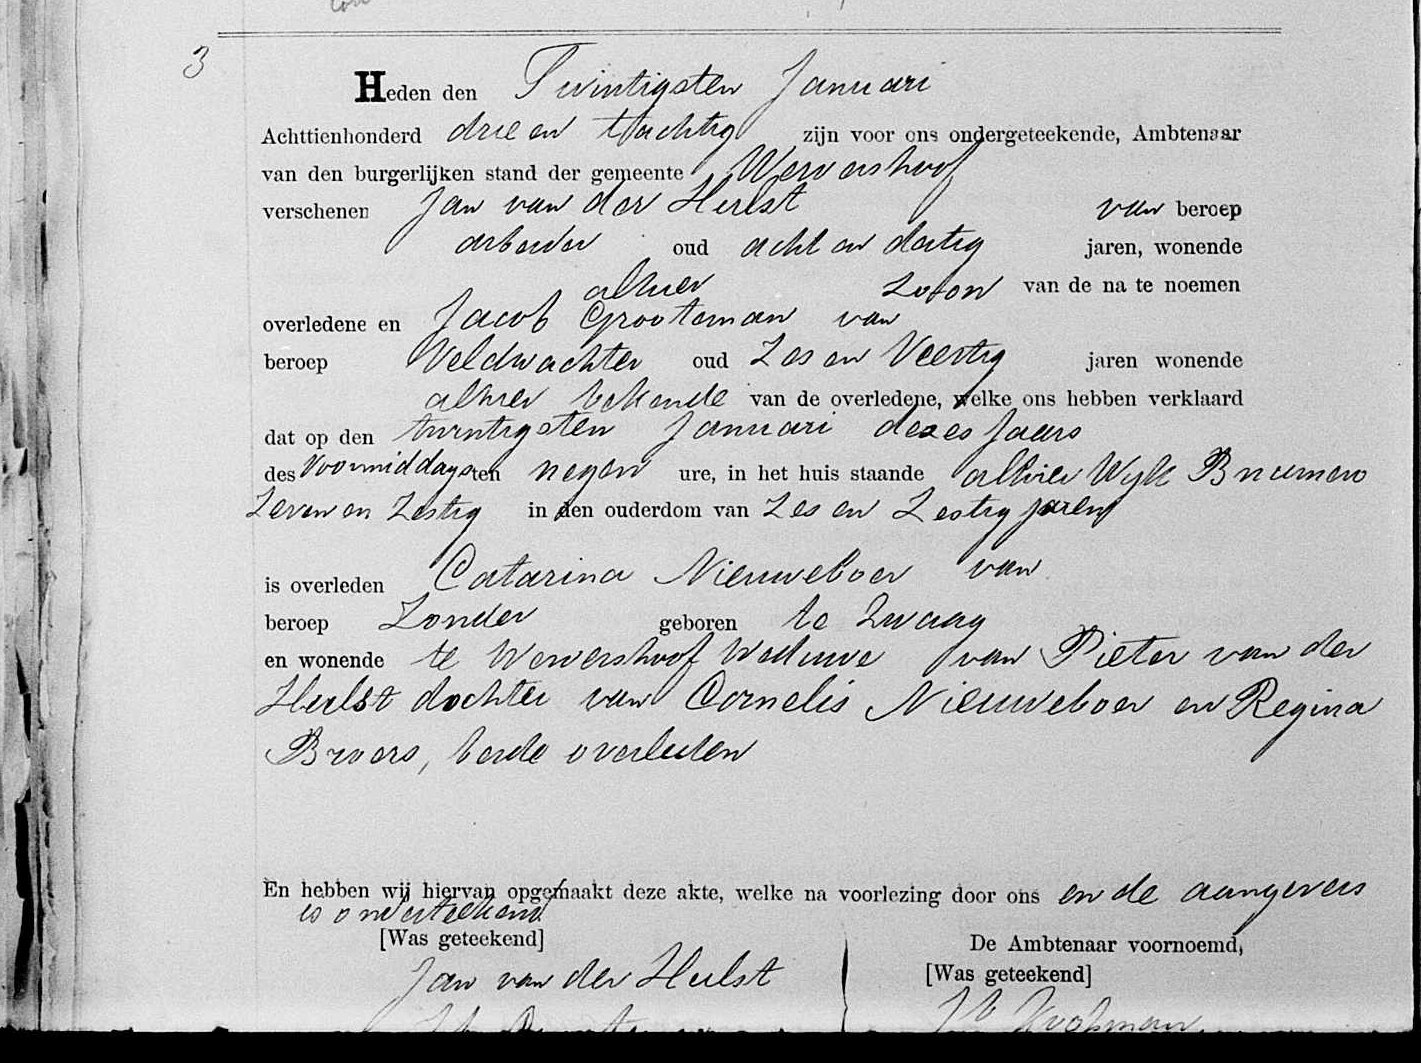 3
Heden den Twintigsten Januari
Achttienhonderd drie en tachtig zijn voor ons ondergeteekende, Ambtenaar
van den burgerlijken stand der gemeente Wervershoof
verschenen Jan van der Hulst van beroep
arbeider oud acht en dertig jaren, wonende
alhier zoon van de na te noemen
overledene en Jacob Grooteman van
beroep Veldwachter oud Zes en Veertig jaren wonende
alhier bekende van de overledene, welke ons hebben verklaard
dat op den twintigsten Januari dezes Jaars
des Voormiddags ten negen ure, in het huis staande alhier Wijk B nummero
Zeven en Zestig in den ouderdom van Zes en Zestig jaren
is overleden Catarina Nieuweboer van
beroep Zonder geboren te Zwaag
en wonende te Wervershoof Weduwe van Pieter van der
Hulst dochter van Cornelis Nieuweboer en Regina
Broers, beide overleden
En hebben wij hiervan opgemaakt deze akte, welke na voorlezing door ons en de aangevers
is onderteekend
[Was geteekend] De Ambtenaar voornoemd,
Jan van der Hulst [Was geteekend]